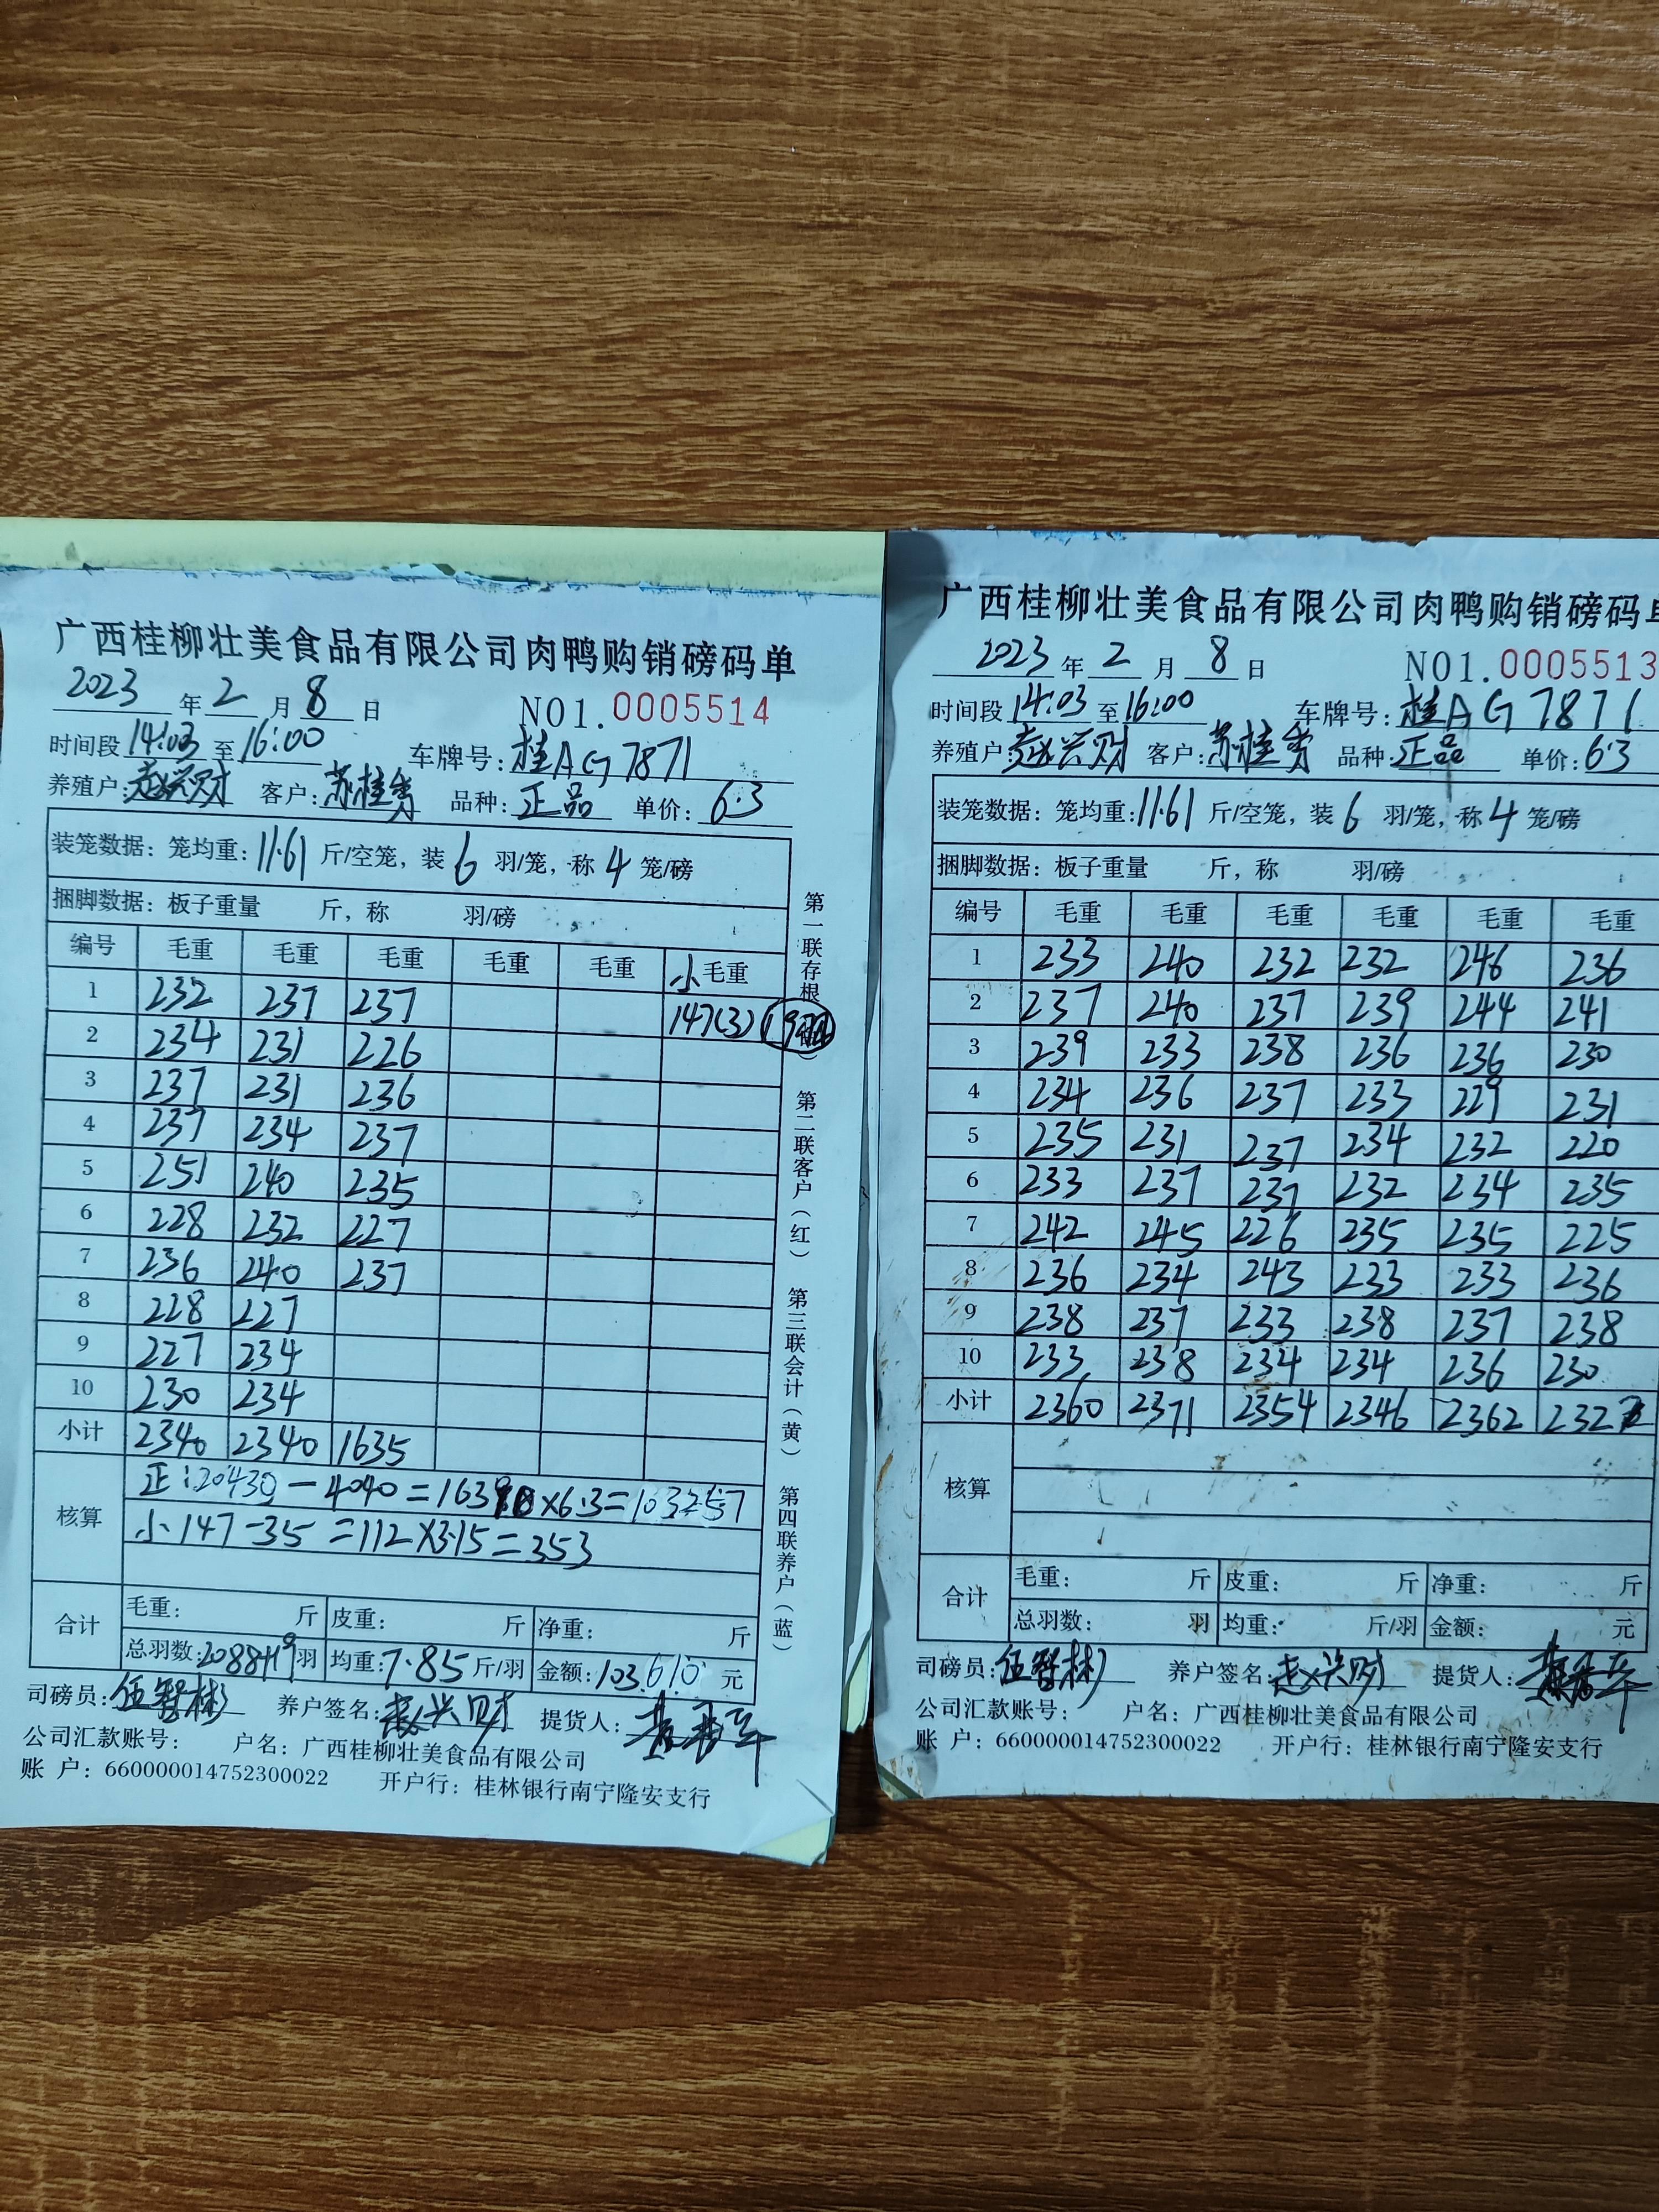 广西桂柳壮美食品有限公司肉鸭购销磅码单
2023 年 2 月 8 日 NO1.0005514
时间段 14:03 至 16:00 车牌号: 桂AG7871
养殖户: 赵兴财 客户: 苏桂秀 品种: 正品 单价: 6.3
装笼数据: 笼均重: 11.61 斤/空笼, 装 6 羽/笼, 称 4 笼/磅
捆脚数据: 板子重量 斤, 称 羽/磅
编号 毛重 毛重 毛重 毛重 毛重 小毛重
1 232 237 237 147(3)
2 234 231 226
3 237 231 236
4 237 234 237
5 251 240 235
6 228 232 227
7 236 240 237
8 228 227
9 227 234
10 230 234
小计 2340 2340 1635
核算 正:20430-4040=16390×6.3=103257
小147-35=112×3.15=353
合计 毛重: 斤 皮重: 斤 净重: 斤
总羽数: 羽 均重: 7.85 斤/羽 金额: 103.610 元
司磅员: 伍智彬 养户签名: 赵兴财 提货人:
公司汇款账号: 户名: 广西桂柳壮美食品有限公司
账 户: 660000014752300022 开户行: 桂林银行南宁隆安支行
第一联存根
第二联客户(红)
第三联会计(黄)
第四联养户(蓝)
广西桂柳壮美食品有限公司肉鸭购销磅码
2023 年 2 月 8 日 NO1.0005513
时间段 14:03 至 16:00 车牌号: 桂AG7871
养殖户: 赵兴财 客户: 苏桂秀 品种: 正品 单价: 6.3
装笼数据: 笼均重: 11.61 斤/空笼, 装 6 羽/笼, 称 4 笼/磅
捆脚数据: 板子重量 斤, 称 羽/磅
编号 毛重 毛重 毛重 毛重 毛重 毛重
1 233 240 232 232 246 236
2 237 240 237 239 244 241
3 239 233 238 236 236 230
4 234 236 237 233 229 231
5 235 231 237 234 232 220
6 233 237 237 232 234 235
7 242 245 226 235 235 225
8 236 234 243 233 233 236
9 238 237 233 238 237 238
10 233 238 234 234 236 230
小计 2360 2371 2354 2346 2362 2322
核算
合计 毛重: 斤 皮重: 斤 净重: 斤
总羽数: 羽 均重: 斤/羽 金额: 元
司磅员: 伍智彬 养户签名: 赵兴财 提货人:
公司汇款账号: 户名: 广西桂柳壮美食品有限公司
账 户: 660000014752300022 开户行: 桂林银行南宁隆安支行